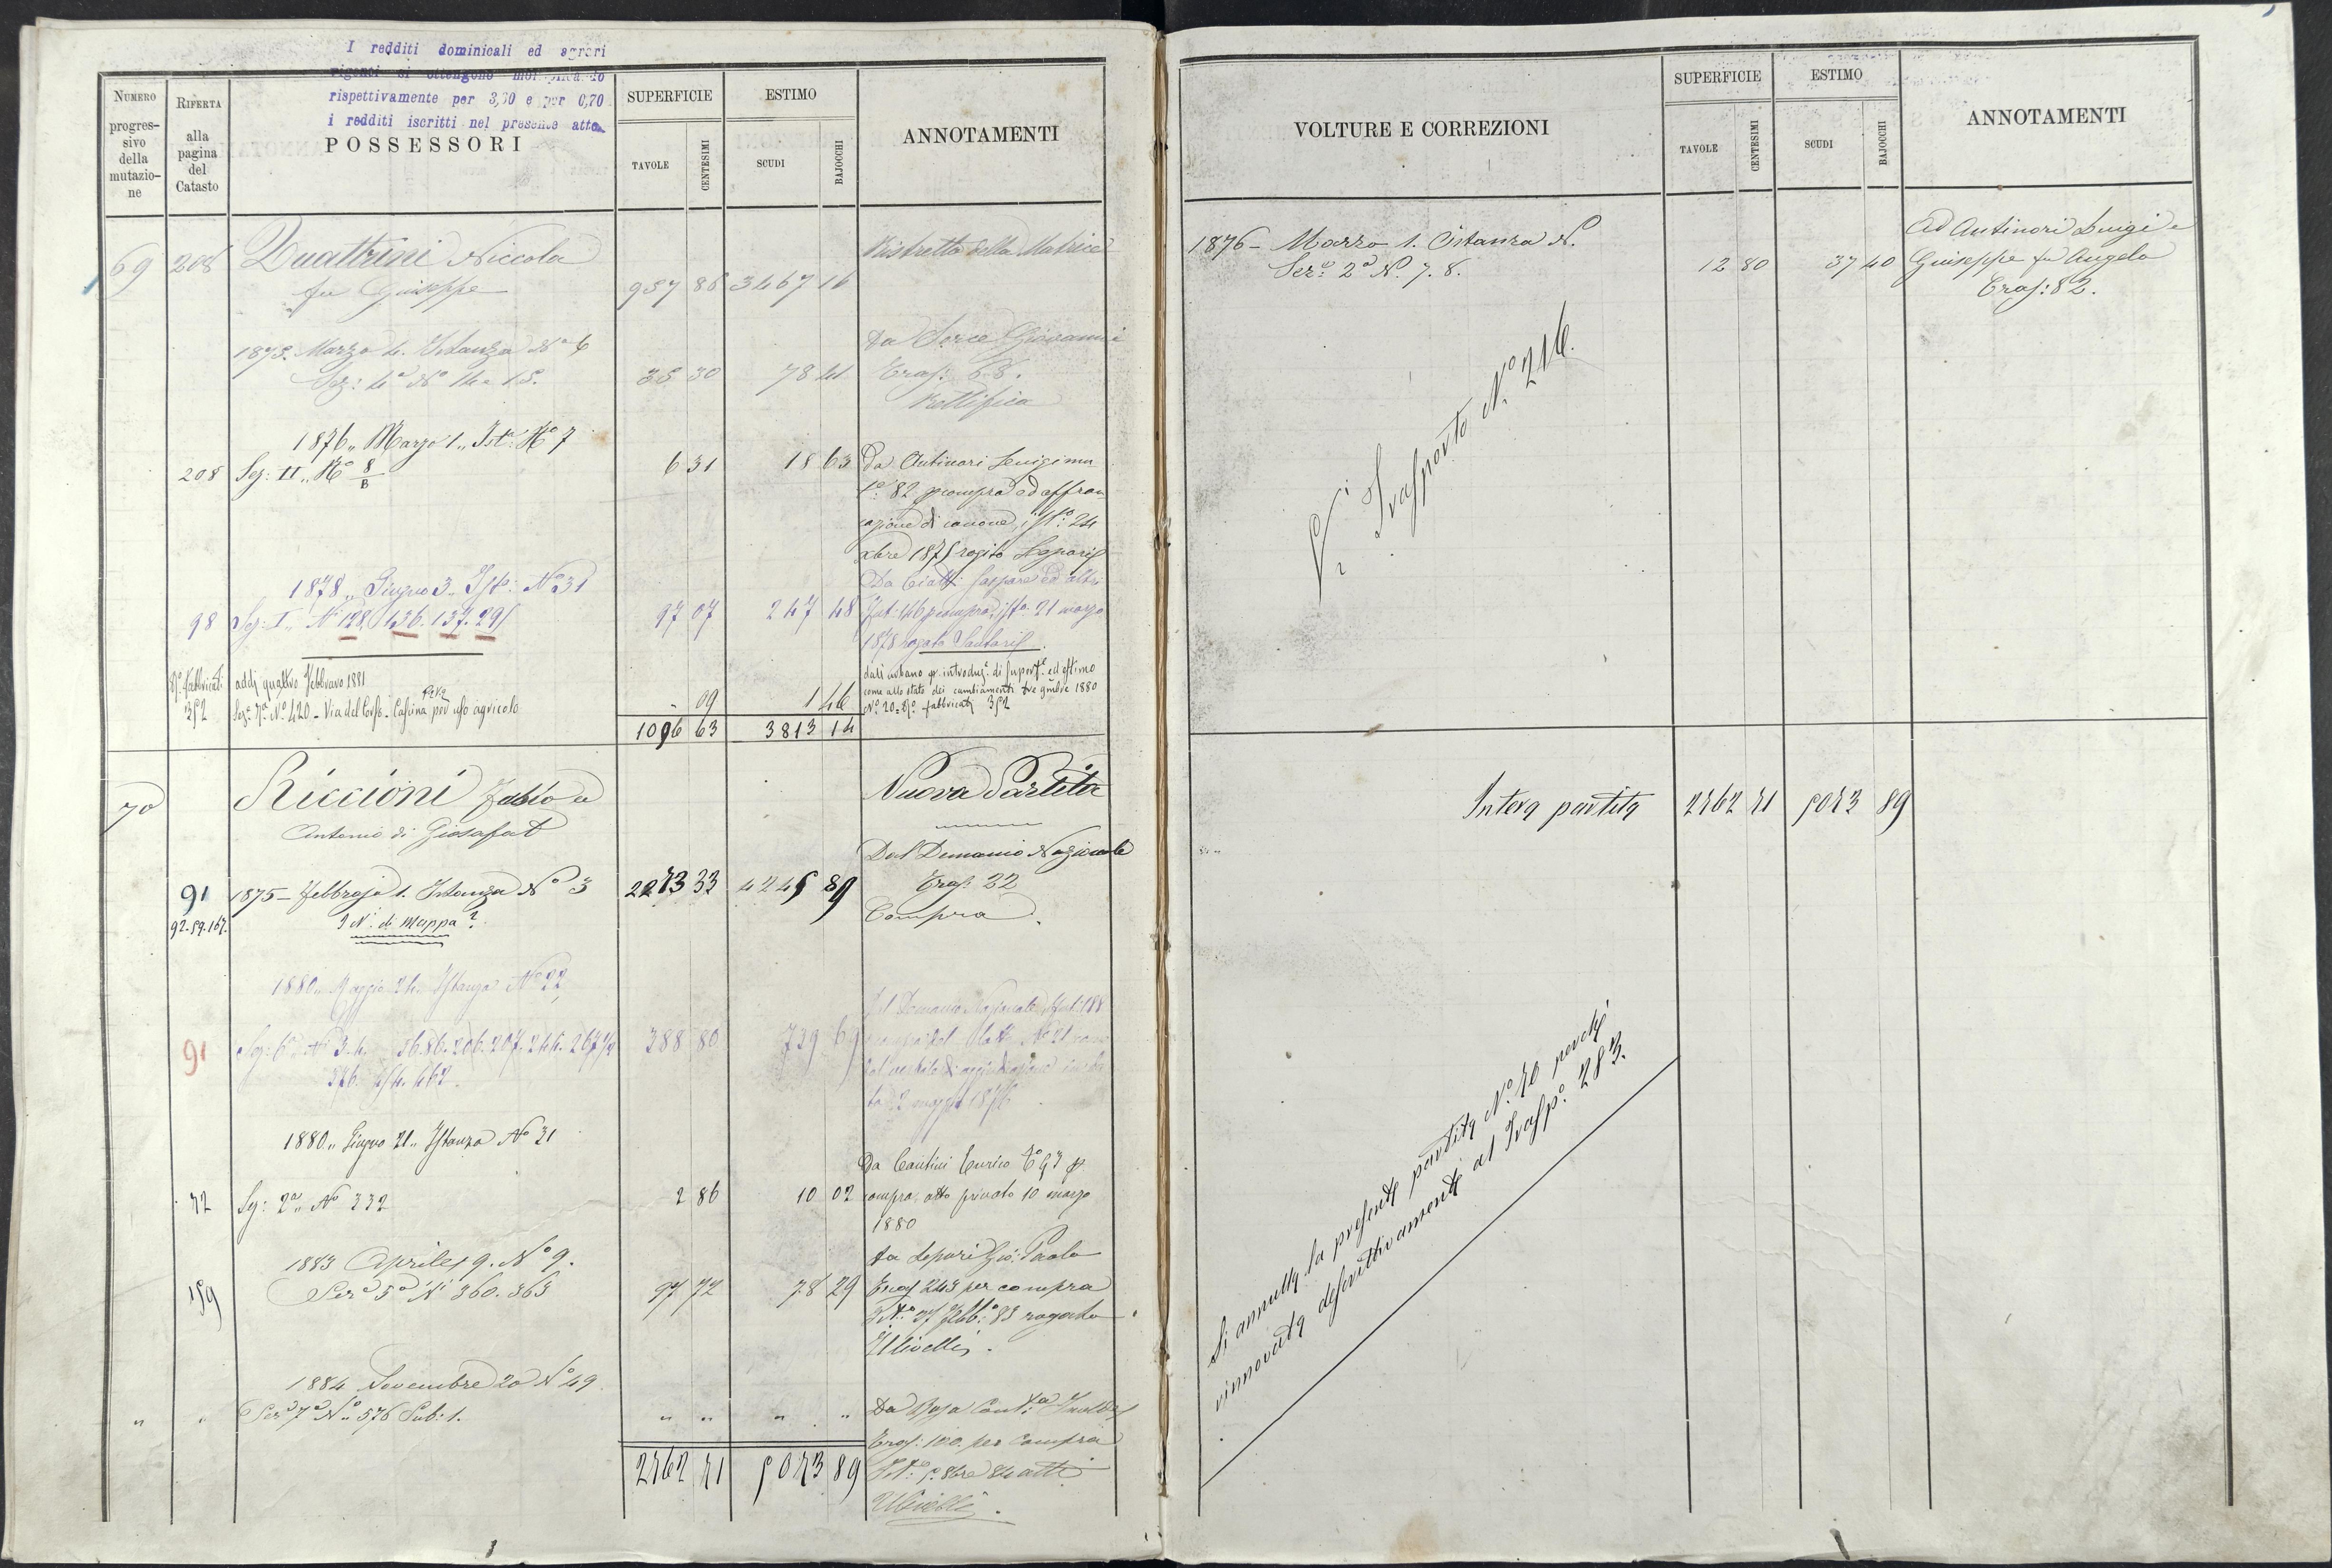 I redditi dominicali ed agrari
vigenti si ottengono moltiplicando
rispettivamente per 3,50 e per 0,70
i redditi iscritti nel presente atto
NUMERO progressivo della mutazione
RIFERTA alla pagina del Catasto
POSSESSORI
SUPERFICIE
TAVOLE CENTESIMI
ESTIMO
SCUDI BAJOCCHI
ANNOTAMENTI
69 208 Quattrini Niccola
fu Giuseppe 957 86 3467 16
Ristretto della Matrice
1875. Marzo 4. Istanza Nº 6
Sez: 4ª Nº 14 e 15. 35 30 78 41
Da Sorce Giovanni
Trasp: 68.
Rettifica
1876,, Marzo 1,, Istª: Nº 7
208 Sez: II,, Nº 8/B 6 31 18 63
Da Antinori Luigi
82 compra ed affran
cazione di canone, 24
Xbre 1875 rogito
1878,, Giugno 3,, Istª: Nº 31
98 Sez: I,, Nº 128. 136. 137. 291 97 07 247 48
Da Ciatti Gaspare ed altri
146 compra 21 marzo
1878 rogato
Fabbricati
352
addi quattro Febbraro 1881
Sezº 7ª Nº 420 - Via del Corso - Cascina per uso agricolo
" 09 1 46
dall'urbano pr introduzº di superfº ed estimo
come allo stato dei cambiamenti tre 9mbre 1880
Nº 20 = fabbricati 352
1096 63 3813 14
70 Riccioni Fabio e
Antonio di Giosafat
Nuova Partita
91 1875 - Febbrajo 1. Istanza Nº 3 2273 33 4245 89
92.59.167. I Ni di Mappa?
Dal Demanio Nazionale
Trasp: 32
Compra
1880,, Maggio 24,, Istanza Nº 22
91 Sez: 6ª Nº 3. 4. 56. 86. 206. 207. 244. 267
388 80 729 69
Dal Demanio Nazionale
1880,, Giugno 21,, Istanza Nº 31
72 Sez: 2ª,, Nº 332 2 86 10 02
Da Cantini Enrico
compra, atto privato 10 marzo
1880
1883 Aprile 9. Nº 9.
159 Sezª 5ª Ni 360. 363 97 72 78 29
Da Lepori Gio: Paolo
Trasp 243 per compra
27 Febb: 83 rogato
Ulivelli.
1884 Novembre 20 Nº 49
" " Sezª 7ª Nº 576 Sub: 1. " " " "
Da Rosa
Trasp: 100. per Compra
8bre 84 atti
Ulivelli.
2762 71 5073 89
VOLTURE E CORREZIONI
SUPERFICIE
TAVOLE CENTESIMI
ESTIMO
SCUDI BAJOCCHI
ANNOTAMENTI
1876 - Marzo 1. Istanza N.
Sezº 2ª N. 7. 8. 12 80 37 40
Ad Antinori Luigi e
Giuseppe fu Angelo
Trasp: 82.
Vi Trasporto Nº 216.
Intera partita 2762 71 5073 89
Si annulla la presente partita Nº 70 perchè
rinnovata descrittivamente al Traspº 283.